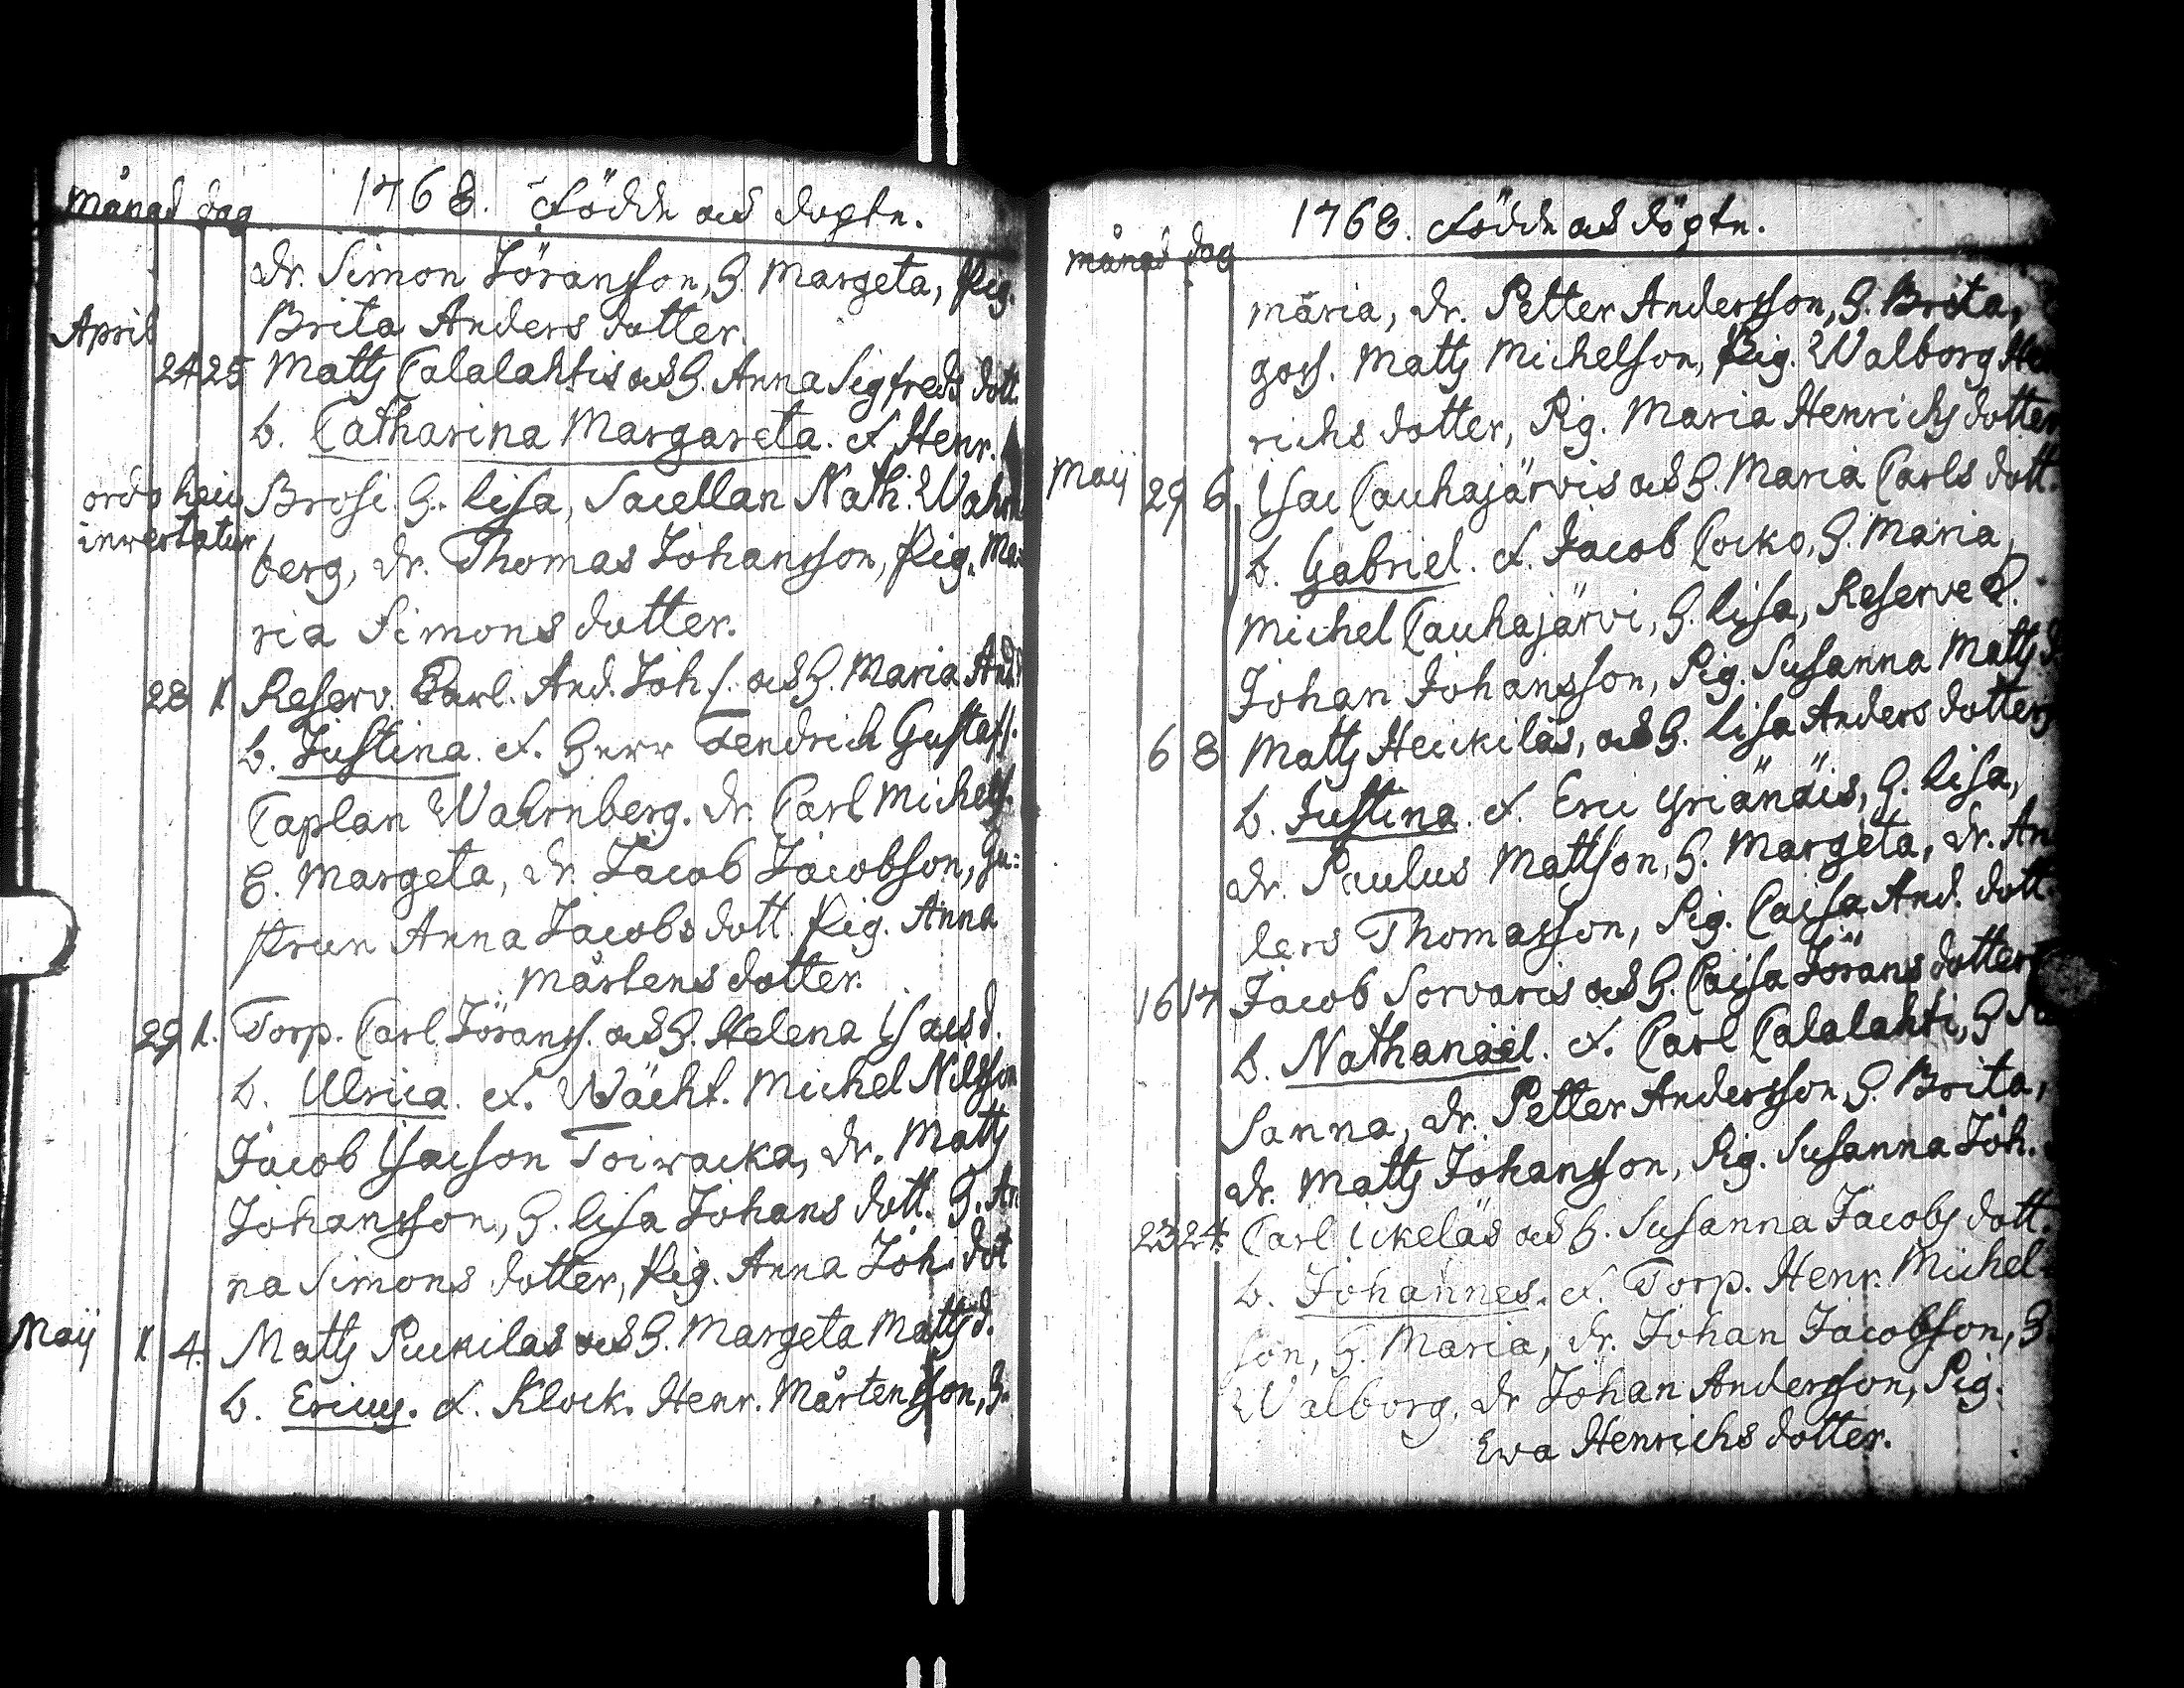 månad dag 1768. Födde och döpte.
dr. Simon Göransson, H. Margeta, Pig.
April Brita Anders dotter.
24 25 Matts Calalahtis och H. Anna Sigfreds dott.
b. Catharina Margareta. F. Henr.
ordo heic Brosi H. Lisa, Sacellan Nath. Wahrn
invertatur berg, dr. Thomas Johansson, Pig. Ma
ria Simons dotter.
28 1 Reserv. Carl. And. Joh s. och H. Maria And.
b. Justina. F. Herr Fendrich Gustafs.
Caplan Wahrnberg. dr. Carl Michels.
H. Margeta, dr. Jacob Jacobson, Ju:
frun Anna Jacobs dott. Pig. Anna
Mårtens dotter.
29 1. Torp. Carl Jörans. och H. Helena Isacs d.
b. Ulrica. F. Wächt. Michel Nilsson
Jacob Isacson Toiwacka, dr. Matts
Johansson, H. Lisa Johans dott. H. An
na Simons dotter, Pig. Anna Joh. dot
Maij 1 4. Matts Peuckilas och H. Margeta Matts d.
b. Ericus. F. Klock. Henr. Mårtensson, H.
månad dag 1768. Födde och döpte.
maria, dr. Petter Andersson, H. Brita,
goss. Matts Michelson, Pig. Walborg Hen
richs dotter, Pig. Maria Henrichs dotter
Maij 29 6 Isac Cauhajärvis och H. Maria Carls dott.
b. Gabriel. F. Jacob Cocko, H. Maria,
Michel Cauhajärvi, H. Lisa, Reserve C.
Johan Johansson, Pig. Susanna Matts d
6 8 Matts Heickilas, och H. Lisa Anders dotters
b. Justina. F. Eric Yriänäis, H. Lisa,
dr. Paulus Mattson, H. Margeta, dr. An
ders Thomasson, Pig. Caisa And. dott.
16 17 Jacob Sorvaris och H. Caisa Jörans dotter
b. Nathanaël. F. Carl Calalahti, H Su
sanna, dr. Petter Andersson, H. Brita,
dr. Matts Johansson, Pig. Susanna Joh.
23 24 Carl Ickeläs och H. Susanna Jacobs dott.
b. Johannes. F. Torp. Henr. Michel
son, H. Maria, dr. Johan Jacobsson, H.
Walborg, dr Johan Andersson, Pig.
Ewa Henrichs dotter.